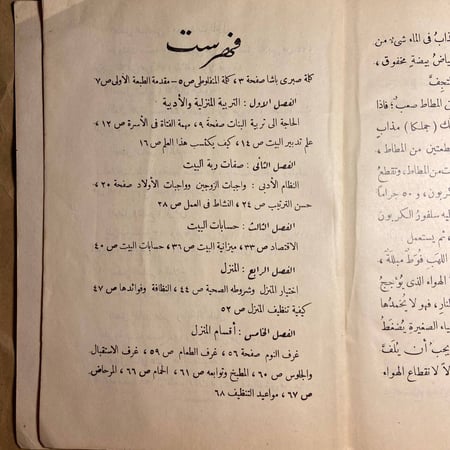 فهرست
كلمة صبرى باشا صفحة ٣، كلمة المنفلوطى ص ٥ – مقدمة الطبعة الأولى ص ٧
الفصل الأول : التربية المنزلية والأدبية
الحاجة الى تربية البنات صفحة ٩، مهمة الفتاة فى الأسرة ص ١٢،
علم تدبير البيت ص ١٤، كيف يكتسب هذا العلم ص ١٦
الفصل الثانى : صفات ربة البيت
النظام الأدبى : واجبات الزوجين وواجبات الأولاد صفحة ٢٠،
حسن الترتيب ص ٢٤، النشاط فى العمل ص ٢٨
الفصل الثالث : حسابات البيت
الاقتصاد ص ٣٣، ميزانية البيت ص ٣٦، حسابات البيت ص ٤٠
الفصل الرابع : المنزل
اختيار المنزل وشروطه الصحية ص ٤٤، النظافة وفوائدها ص ٤٧
كيفية تنظيف المنزل ص ٥٢
الفصل الخامس : أقسام المنزل
غرف النوم صفحة ٥٦، غرف الطعام ص ٥٩، غرف الاستقبال
والجلوس ص ٦٠، المطبخ وتوابعه ص ٦١، الحمام ص ٦٦، المرحاض
ص ٦٧، مواعيد التنظيف ٦٨
ذاب فى الماء شىء من
بياض بيضة مخفوق،
المطاط صعب؛ فاذا
(جملكا) مذاب
قطعتين من المطاط،
من المطاط، وتقطع
كربون، و ٥٠ جراما
سلفور الكربون
ثم يستعمل
اللهب فوط مبللة،
الهواء الذى يؤجج
النار، فهو لا يخمدها
الصغيرة يضغط
يجب أن يلف
لانقطاع الهواء